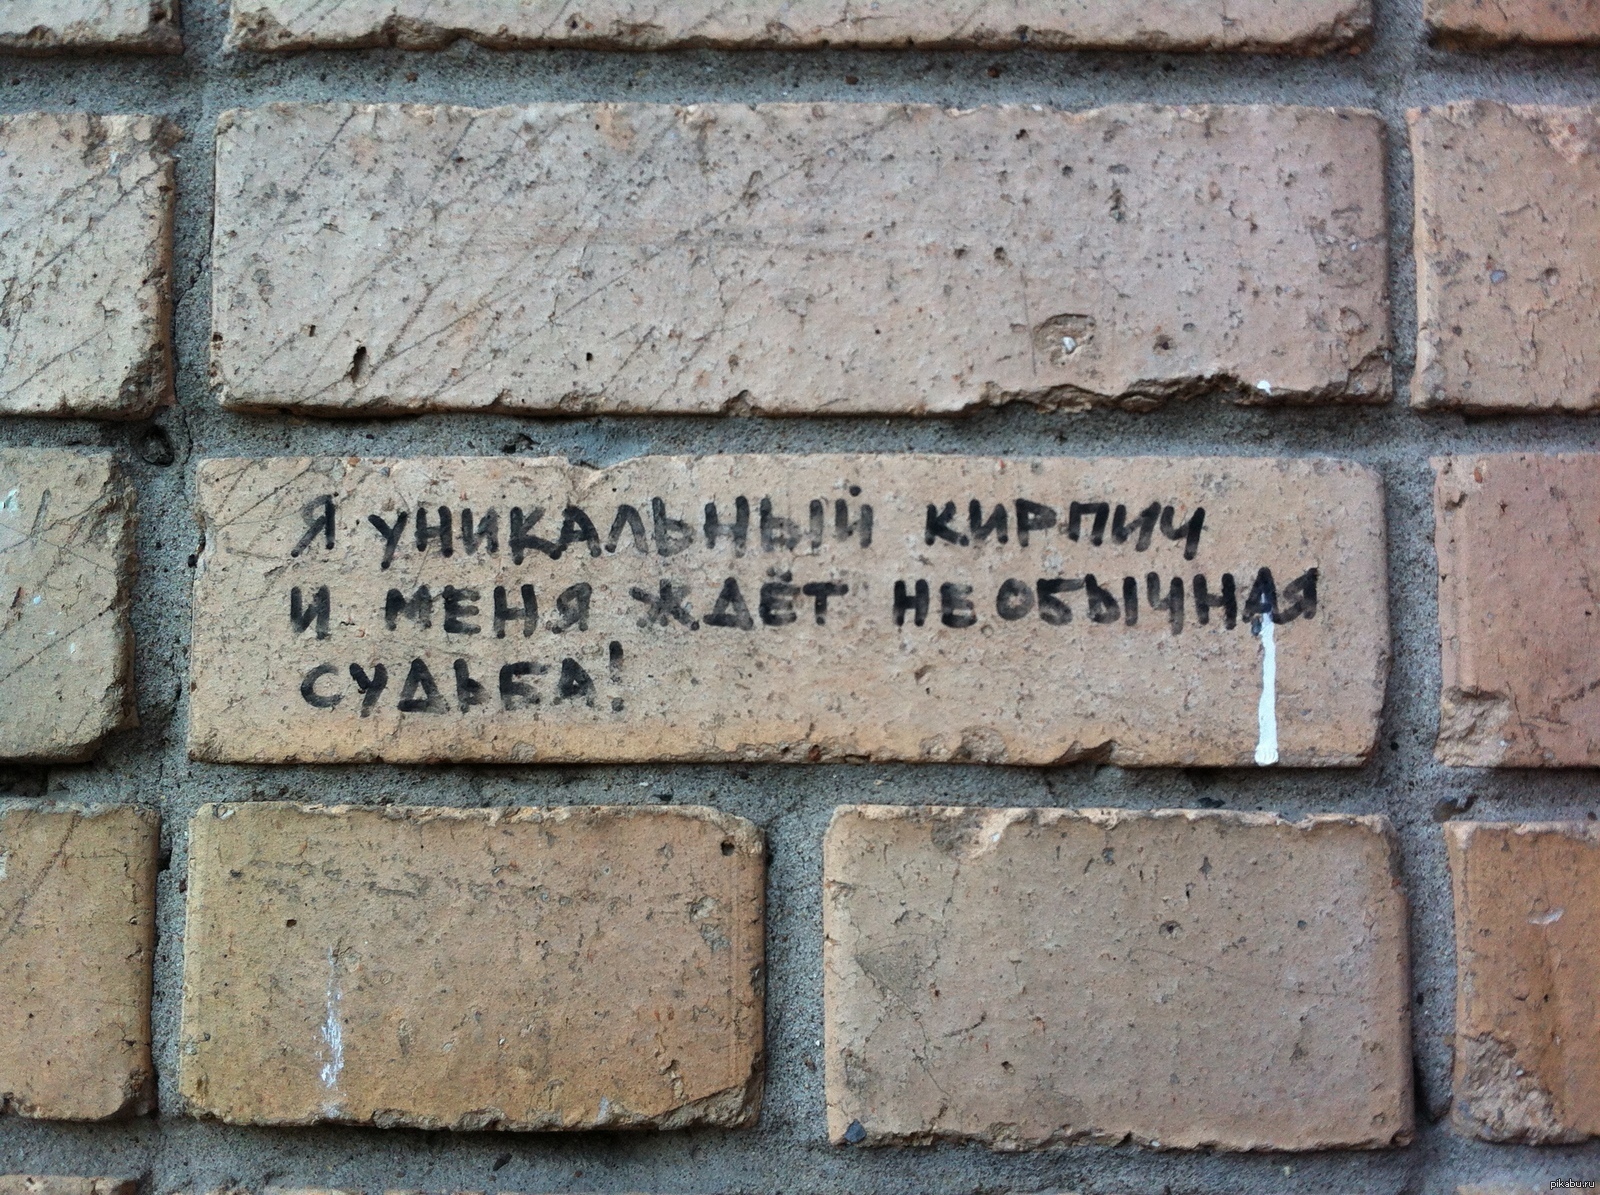 Я УНИКАЛЬНЫЙ КИРПИЧ
И МЕНЯ ЖДЁТ НЕОБЫЧНАЯ
СУДЬБА!
pikabu.ru